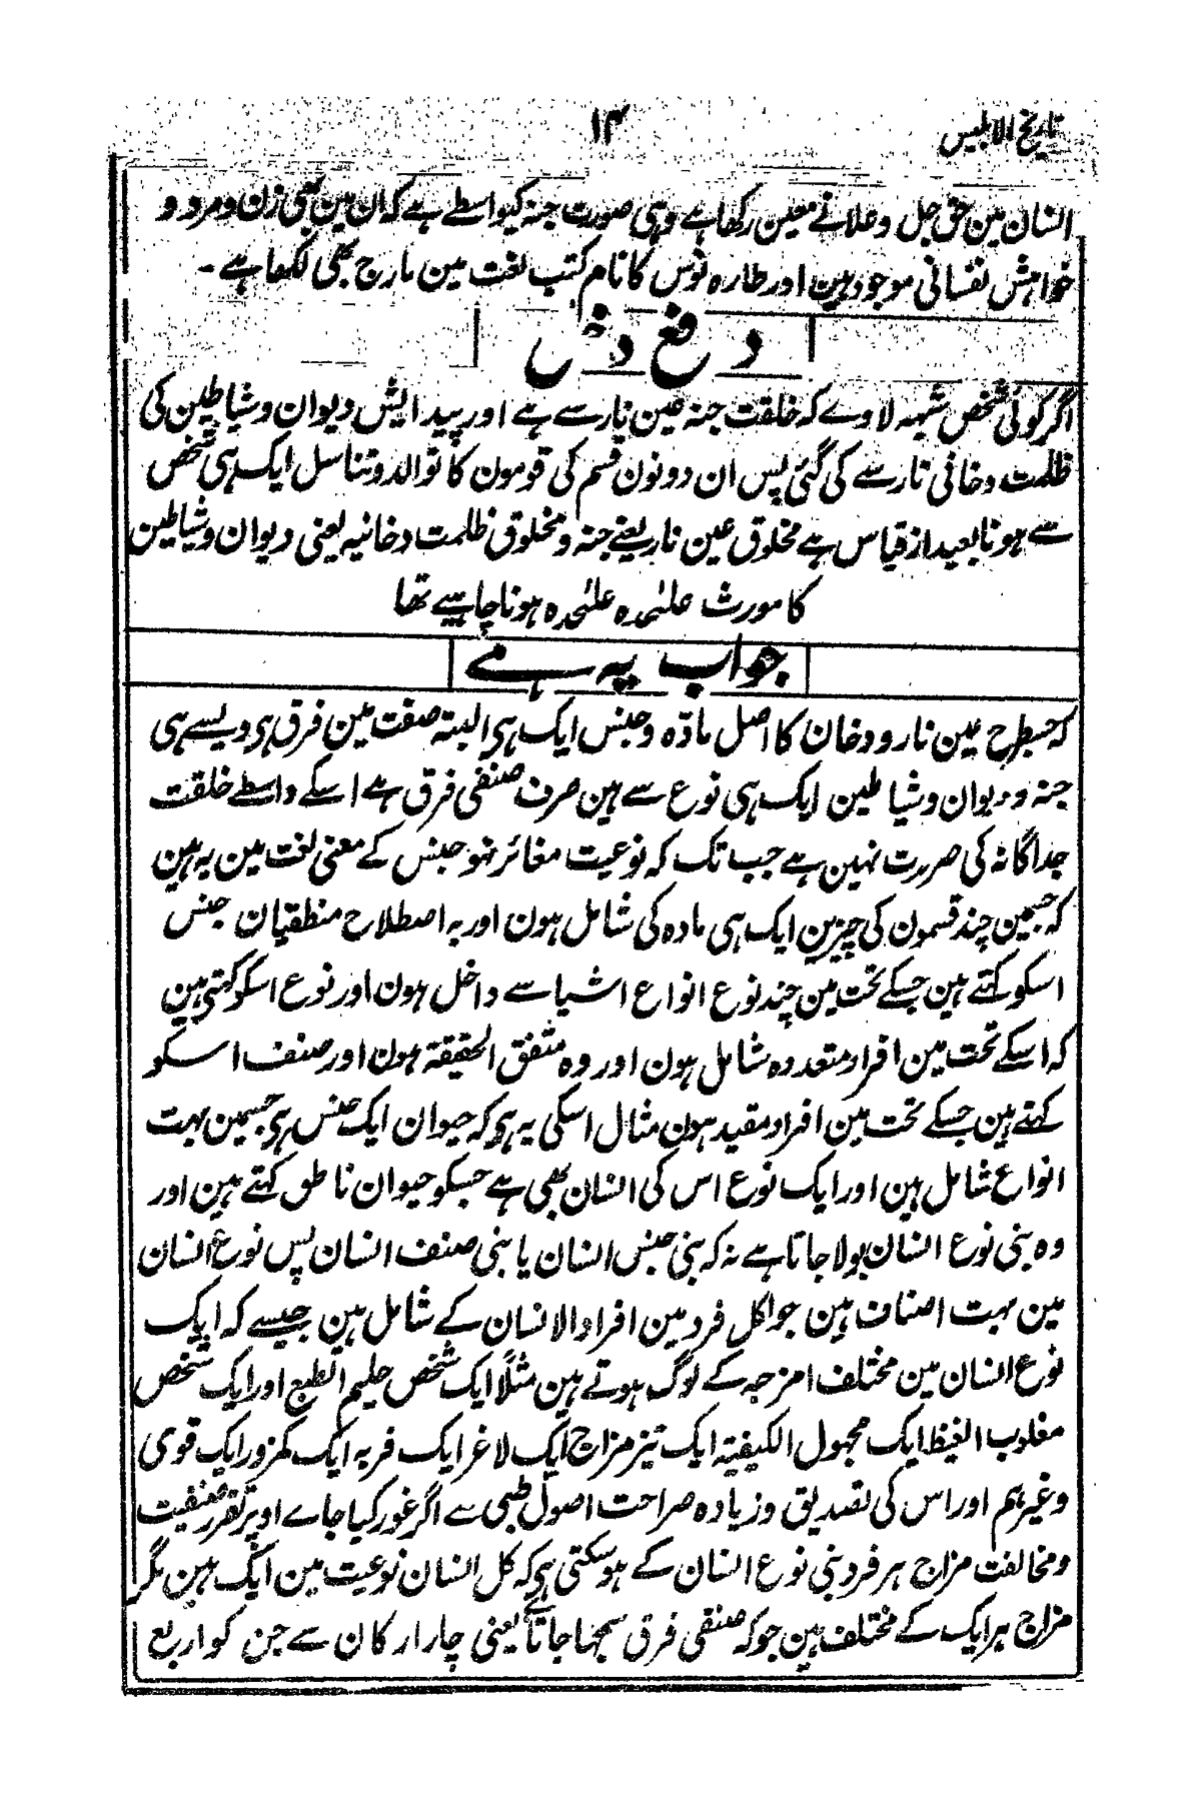 تاریخ الابلیس ۱۴
انسان مین حق جل وعلانے معین رکھا ہے وہی صورت جنہ کیواسطے ہے کہ ان مین بھی زن و مرد و
خواہش نفسانی موجود ہین اور طارہ نوس کا نام کتب لغت مین مارج بھی لکھا ہے ۔
دفع دخل
اگر کوئی شخص شبہہ لاوے کہ خلقت جنہ عین نار سے ہے اور پیدایش دیوان و شیاطین کی
ظلمت دخانی نار سے کی گئی پس ان دونون قسم کی قومون کا توالد و تناسل ایک ہی شخص
سے ہونا بعید از قیاس ہے مخلوق عین نار یعنے جنہ و مخلوق ظلمت دخانیہ یعنی دیوان و شیاطین
کا مورث علٰحدہ علٰحدہ ہونا چاہیے تھا
جواب یہ ہے
کہ جسطرح عین نار و دخان کا اصل مادّہ و جنس ایک ہی البتہ صفت مین فرق ہی ویسے ہی
جنہ و دیوان و شیاطین ایک ہی نوع سے ہین صرف صنفی فرق ہے اسکے واسطے خلقت
جداگانہ کی ضررت نہین ہے جب تک کہ نوعیت مغائر نہو جنس کے معنی لغت مین یہ ہین
کہ جسمین چند قسمون کی چیزین ایک ہی مادہ کی شامل ہون اور بہ اصطلاح منطقیان جنس
اسکو کہتے ہین جسکے تحت مین چند نوع انواع اشیا سے داخل ہون اور نوع اسکو کہتی ہین
کہ اسکے تحت مین افراد متعددہ شامل ہون اور وہ متفق الحقیقۃ ہون اور صنف اسکو
کہتے ہین جسکے تحت مین افراد مقید ہون مثال اسکی یہ ہی کہ حیوان ایک جنس ہی جسمین بہت
انواع شامل ہین اور ایک نوع اس کی انسان بھی ہے جسکو حیوان ناطق کہتے ہین اور
وہ بنی نوع انسان بولا جاتا ہے نہ کہ بنی جنس انسان یا بنی صنف انسان پس نوع انسان
مین بہت اصناف ہین جو اکل فرد مین افراد الانسان کے شامل ہین جیسے کہ ایک
نوع انسان مین مختلف امزجہ کے لوگ ہوتے ہین مثلاً ایک شخص حلیم الطبع اور ایک شخص
مغلوب الغیظ ایک مجہول الکیفیۃ ایک تیز مزاج ایک لاغر ایک فربہ ایک کمزور ایک قوی
وغیرہم اور اس کی تصدیق و زیادہ صراحت اصول طبی سے اگر غور کیا جاے اوپر تقرر صنفیت
و مخالفت مزاج ہر فرد بنی نوع انسان کے ہوسکتی ہی کہ کل انسان نوعیت مین ایک ہین مگر
مزاج ہر ایک کے مختلف ہین جو کہ صنفی فرق سمجھا جاتا ہے یعنی چار ارکان سے جن کو اربع